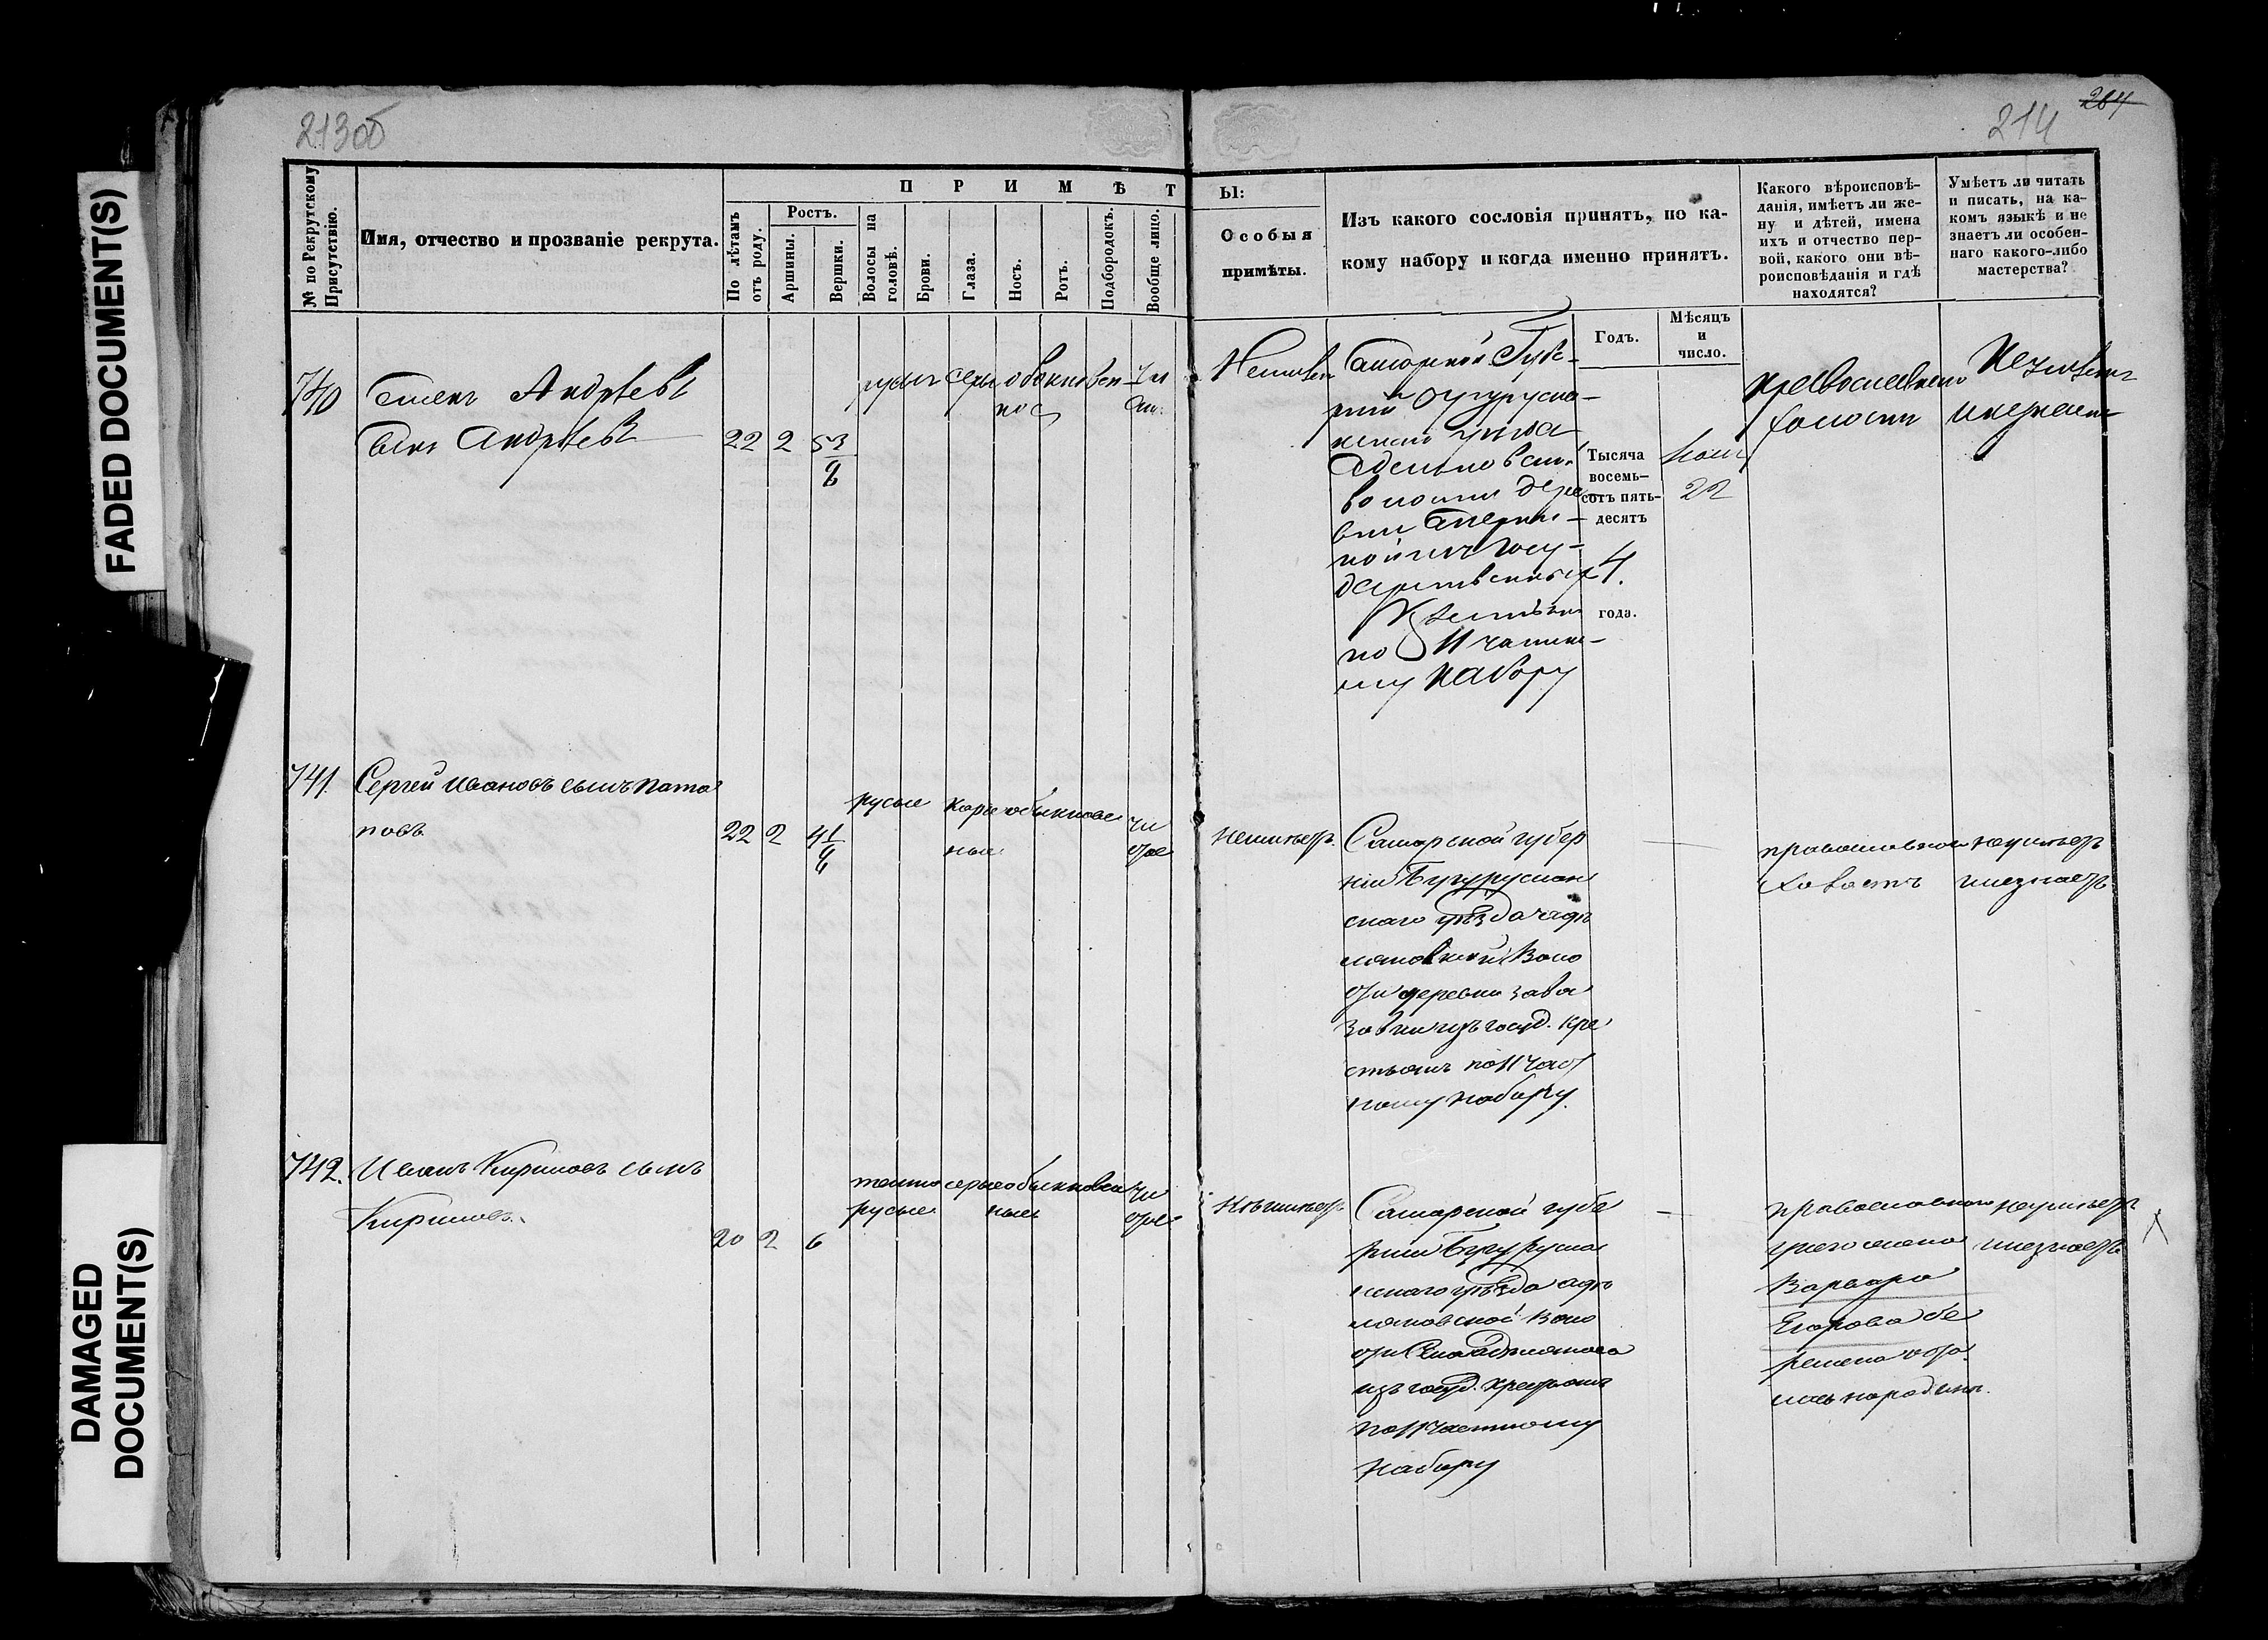 213об
214
264
FADED DOCUMENT(S)
DAMAGED DOCUMENT(S)
№ по Рекрутскому Присутствію.
Имя, отчество и прозваніе рекрута.
ПРИМѢТ
По лѣтамъ отъ роду.
Ростъ.
Аршины.
Вершки.
Волосы на головѣ.
Брови.
Глаза.
Носъ.
Ротъ.
Подбородокъ.
Вообще лицо.
Ы:
Особыя
примѣты.
Изъ какого сословія принятъ, по ка-
кому набору и когда именно принятъ.
Годъ.
Мѣсяцъ
и
число.
Какого вѣроисповѣ-
данія, имѣетъ ли же-
ну и дѣтей, имена
ихъ и отчество пер-
вой, какого они вѣ-
роисповѣданія и гдѣ
находятся?
Умѣетъ ли читать
и писать, на ка-
комъ языкѣ и не
знаетъ ли особен-
наго какого-либо
мастерства?
740
Андрѣевъ
сынъ Андрѣевъ
22 2 5 3/8
русы серы обыкновен
чи
Неимѣет
Самарской Губе-
рніи Бугурусла-
нскаго уѣзда
волости дере
вни
Госу-
дарственныхъ
Крестьян
по 11 частно-
му набору
Тысяча
восемь-
сотъ пять-
десятъ
4.
года.
22
православнаго
холостъ
Неумѣетъ
инезнаетъ
741.
Сергей Ивановъ сынъ Пота
повъ
22 2 4 1/8
русые карие обыкновен
ные
чи
стое
неимѣетъ.
Самарской губер
ніи Бугуруслан
скаго уѣзда
Воло
сти деревни
изъ госуд. кре
стьянъ по 11 част
ному набору.
православнаго
холостъ
неумѣетъ
инезнаетъ
742.
Иванъ Кириловъ сынъ
Кириловъ.
20 2 6
темно серые обыкновен
русые ные
чи
стое
неимѣетъ.
Самарской губе
рніи Бугурусла
нскаго уѣзда адѣ
ляковской Воло
сти Села адѣлякова
изъ госуд. крестьянъ
по 11 частному
набору
православнаго
у него жена
Варвара
Егорова бе
ремена оста
лась народинѣ.
неумѣетъ
инезнаетъ